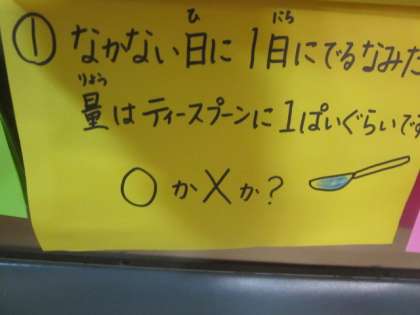 ① なかない日に1日にでるなみだ
量はティースプーンに1ぱいぐらいです
ひ にち
りょう
○か×か?